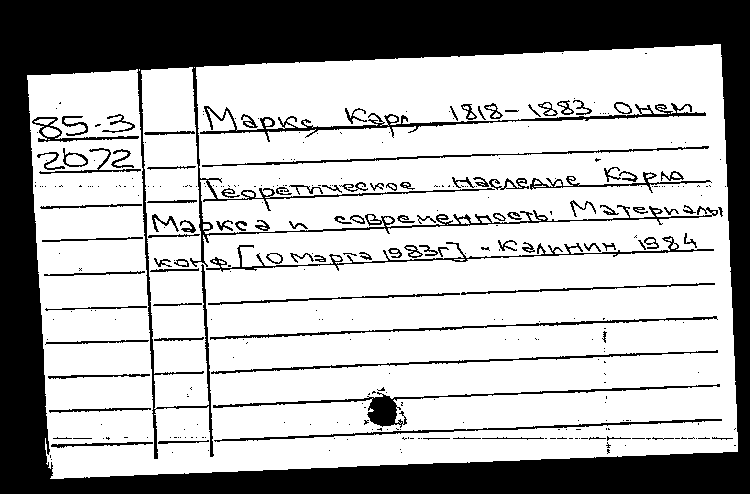 85-3 Маркс, Карл, 1818-1883 о нем
2072
Теоретическое наследие Карла
Маркса и современность: Материалы
конф [10 марта 1983г]. - Калинин, 1984